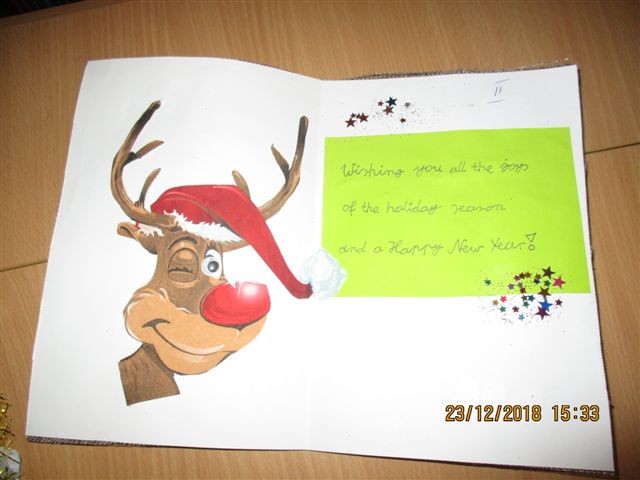 II
Wishing you all the joys
of the holiday season
and a Happy New Year!
23/12/2018 15:33